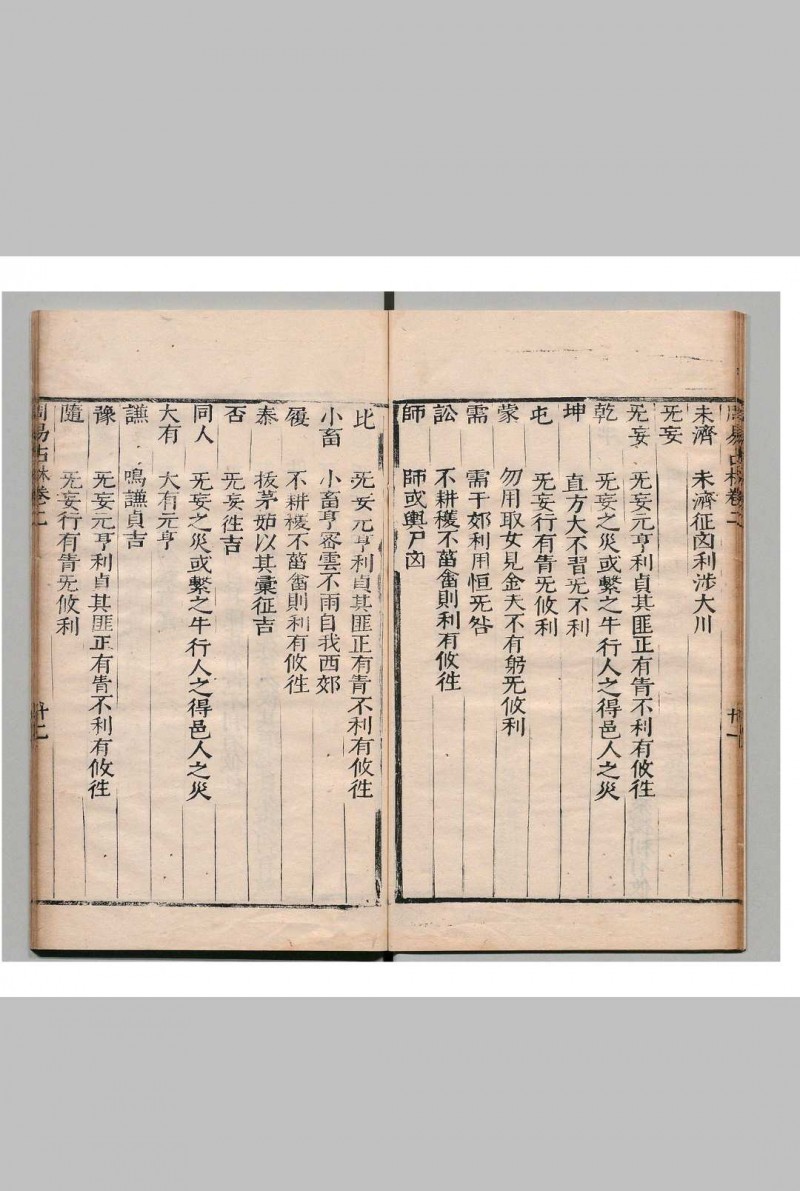 周易古林卷二 廿一
未濟 未濟征凶利涉大川
旡妄
旡妄 旡妄元亨利貞其匪正有眚不利有攸徃
乾 旡妄之災或繫之牛行人之得邑人之災
坤 直方大不習旡不利
屯 旡妄行有眚旡攸利
蒙 勿用取女見金夫不有躬旡攸利
需 需于郊利用恒旡咎
訟 不耕穫不菑畬則利有攸徃
師 師或輿尸凶
比 旡妄元亨利貞其匪正有眚不利有攸徃
小畜 小畜亨密雲不雨自我西郊
履 不耕穫不菑畬則利有攸徃
泰 拔茅茹以其彙征吉
否 旡妄徃吉
同人 旡妄之災或繫之牛行人之得邑人之災
大有 大有元亨
謙 鳴謙貞吉
豫 旡妄元亨利貞其匪正有眚不利有攸徃
隨 旡妄行有眚旡攸利
周易占林卷二 廿二